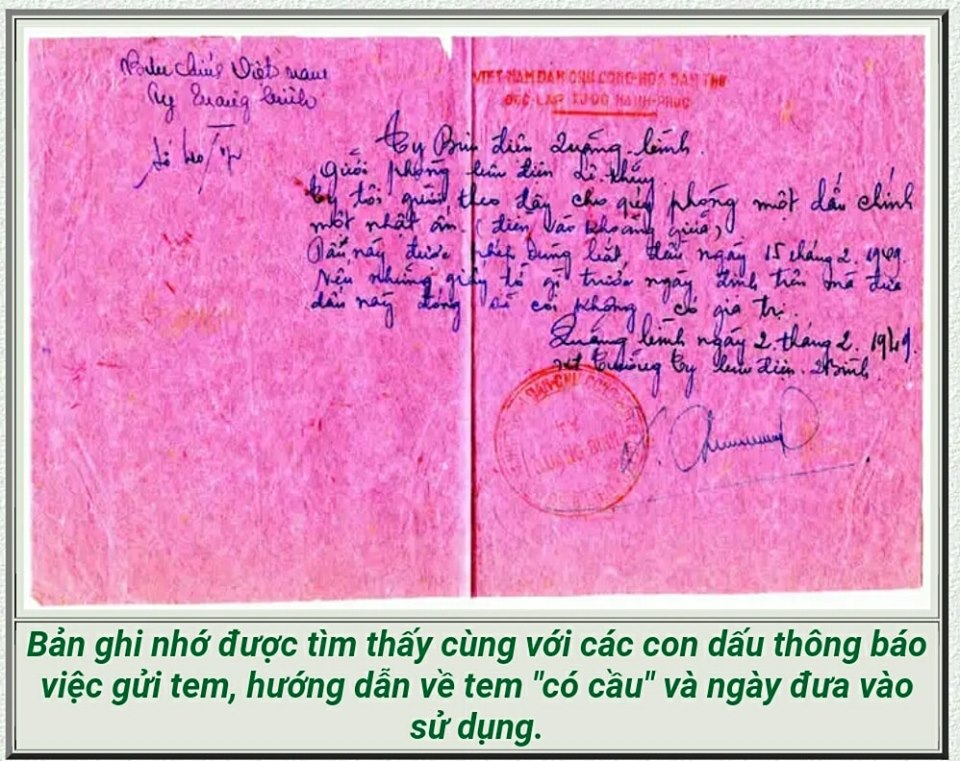 Bưu chính Việt nam
Ty Quảng bình
Số
VIỆT-NAM DÂN CHỦ CỘNG-HÒA DÂN THỨ
ĐỘC-LẬP TỰ-DO HẠNH-PHÚC
Ty Bưu điện Quảng-bình
Gưởi phòng bưu điện Lê-
Ty tôi gưởi theo đây cho quý phòng một dấu chính
một nhật ấn (điền vào khoảng giữa)
Dấu này được phép dùng bắt đầu ngày 15 tháng 2. 1949.
Nếu những giấy tờ gì trước ngày định trên mà đưa
dấu này đóng sẽ coi không có giá trị.
Quảng bình ngày 2. tháng 2. 1949.
Trưởng Ty bưu điện. QBình
DÂN-CHỦ CỘNG
TY
QUANG BINH
Bản ghi nhớ được tìm thấy cùng với các con dấu thông báo
việc gửi tem, hướng dẫn về tem "có cầu" và ngày đưa vào
sử dụng.